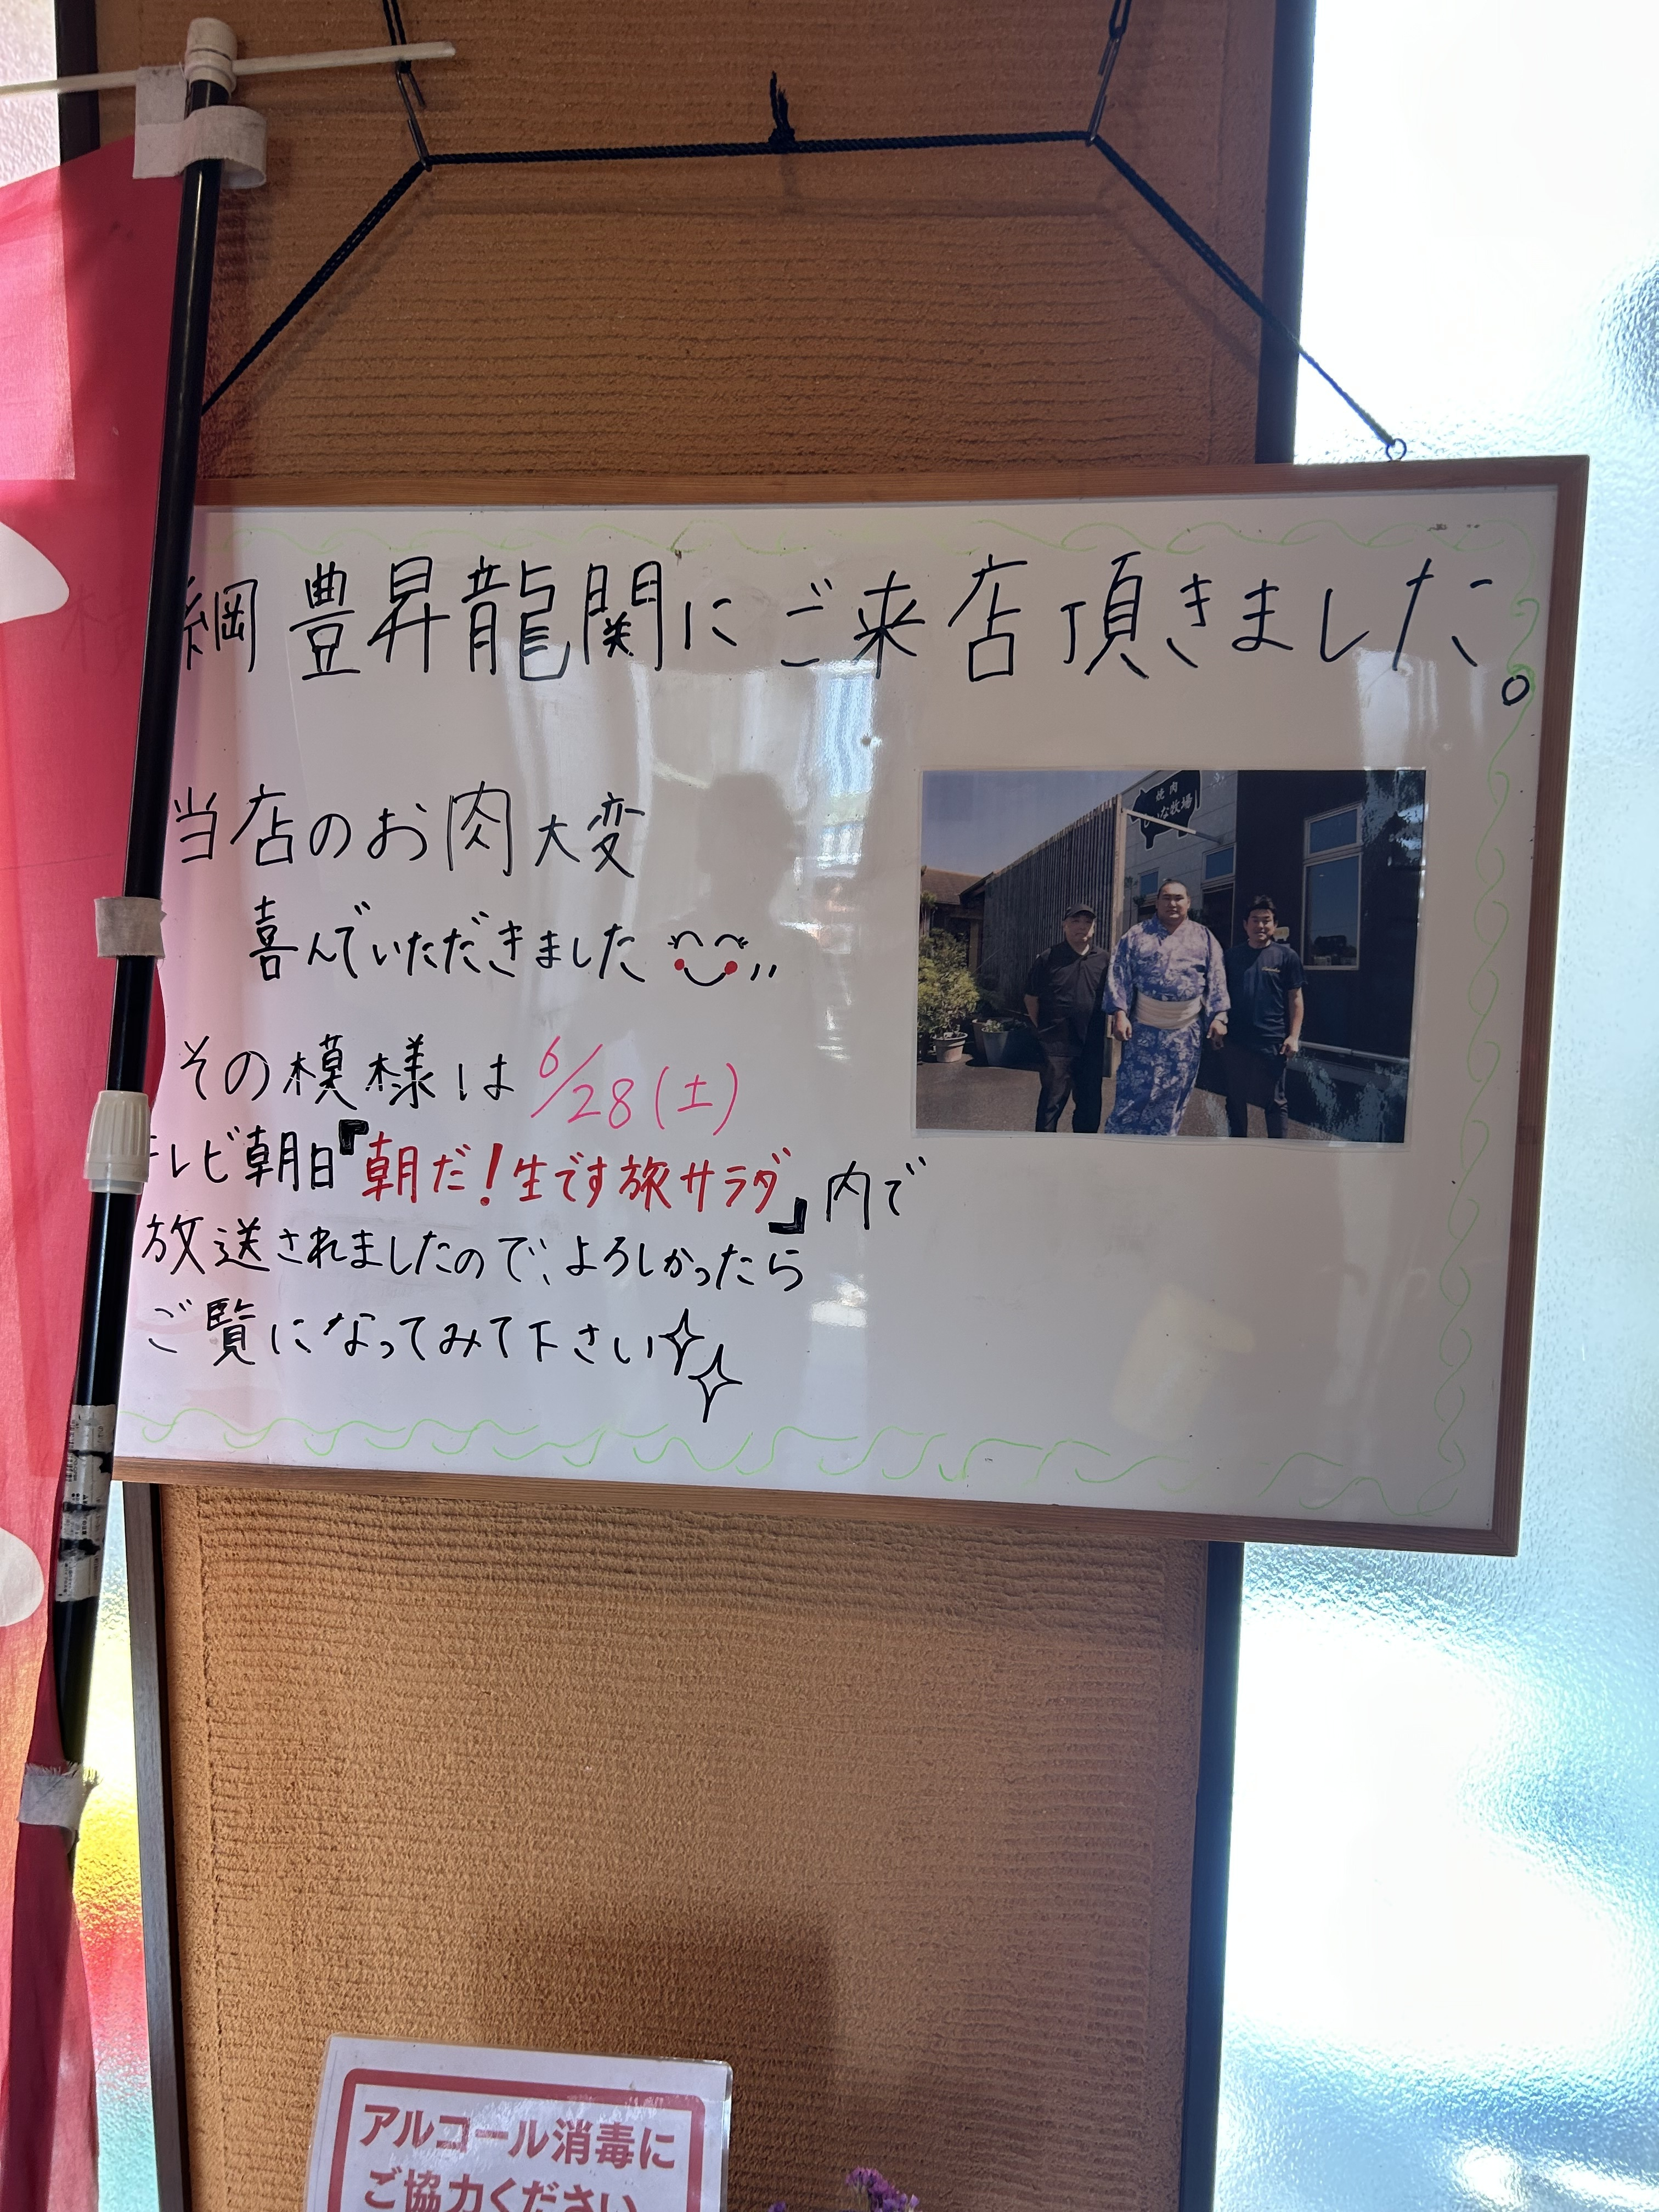 綱豊昇龍関にご来店頂きました。
当店のお肉大変
喜んでいただきました
その模様は6/28(土)
テレビ朝日『朝だ!生です旅サラダ』内で
放送されましたので、よろしかったら
ご覧になってみて下さい
焼肉
な牧場
アルコール消毒に
ご協力ください